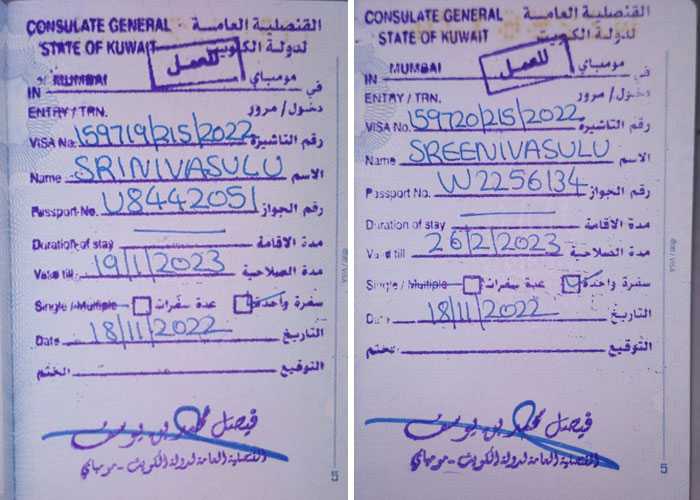 CONSULATE GENERAL القنصلية العامة
STATE OF KUWAIT لدولة الكويت
للعمل
IN MUMBAI في مومباي
ENTRY / TRN. دخول / مرور
VISA No. 159719/215/2022 رقم التاشيرة
Name SRINIVASULU الاسم
Passport No. U8442051 رقم الجواز
Duration of stay مدة الاقامة
Valid till 19/1/2023 مدة الصلاحية
Single / Multiple عدة سفرات سفرة واحدة
Date 18/11/2022 التاريخ
الختم التوقيع
فيصل محمد بن يوسف
القنصلية العامة لدولة الكويت - مومباي
5
CONSULATE GENERAL القنصلية العامة
STATE OF KUWAIT لدولة الكويت
للعمل
IN MUMBAI في مومباي
ENTRY / TRN. دخول / مرور
VISA No. 159720/215/2022 رقم التاشيرة
Name SREENIVASULU الاسم
Passport No. W2256134 رقم الجواز
Duration of stay مدة الاقامة
Valid till 26/2/2023 مدة الصلاحية
Single / Multiple عدة سفرات سفرة واحدة
Date 18/11/2022 التاريخ
تختم التوقيع
فيصل محمد بن يوسف
القنصلية العامة لدولة الكويت - مومباي
5